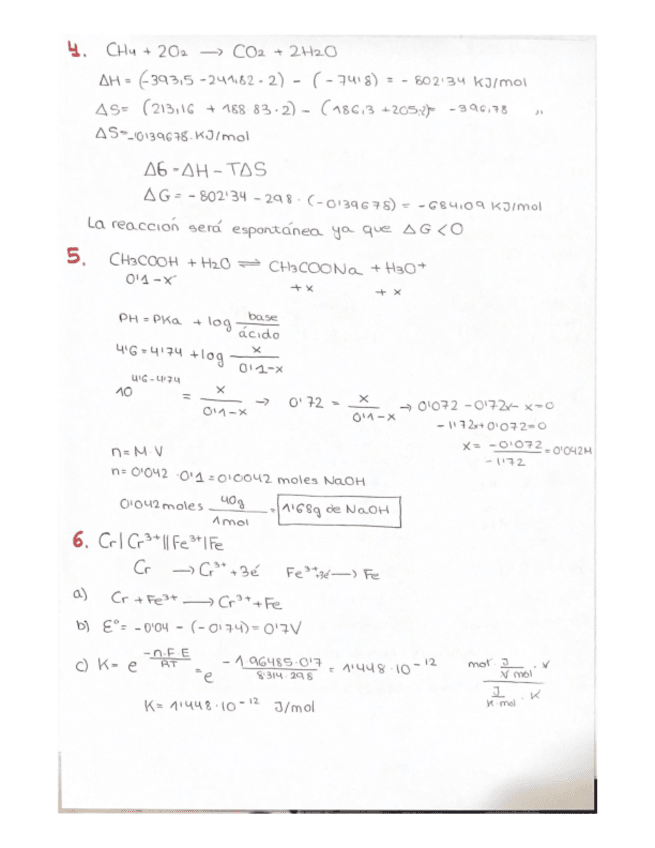 4. CH4 + 2O2 → CO2 + 2H2O
ΔH = (-393,5 - 241,82 · 2) - (-74'8) = -802'34 KJ/mol
ΔS = (213,16 + 188 83 · 2) - (186,3 + 205·2) = -396,78 "
ΔS = -0'39678 · KJ/mol
ΔG = ΔH - TΔS
ΔG = -802'34 - 298 · (-0'39678) = -684,09 KJ/mol
La reacción será espontánea ya que ΔG < 0
5. CH3COOH + H2O ⇌ CH3COONa + H3O+
0'1-x +x +x
PH = PKa + log base/ácido
4'6 = 4'74 + log x/0'1-x
10^4'6-4'74 = x/0'1-x → 0'72 = x/0'1-x → 0'072 - 0'72x - x = 0
-1'72x + 0'072 = 0
x = -0'072/-1'72 = 0'042M
n = M·V
n = 0'042 · 0'1 = 0'0042 moles NaOH
0'042 moles · 40g/1mol = 1'68g de NaOH
6. Cr | Cr3+ || Fe3+ | Fe
Cr → Cr3+ + 3é Fe3+ +3é → Fe
a) Cr + Fe3+ → Cr3+ + Fe
b) Ɛ° = -0'04 - (-0'74) = 0'7V
c) K = e^-n·F·E/RT = e^-1 96485·0'7/8'314·298 = 1'448·10^-12 mol · J/V mol · V / J/K·mol · K
K = 1'448·10^-12 J/mol